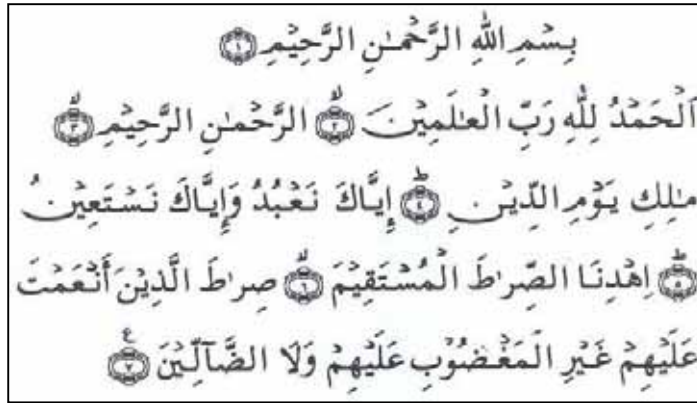 بِسْمِ اللهِ الرَّحْمٰنِ الرَّحِيْمِ ۝١
اَلْحَمْدُ لِلّٰهِ رَبِّ الْعٰلَمِيْنَ ۝٢ الرَّحْمٰنِ الرَّحِيْمِ ۝٣
مٰلِكِ يَوْمِ الدِّيْنِ ۝٤ إِيَّاكَ نَعْبُدُ وَإِيَّاكَ نَسْتَعِيْنُ
۝٥ اِهْدِنَا الصِّرٰطَ الْمُسْتَقِيْمَ ۝٦ صِرٰطَ الَّذِيْنَ أَنْعَمْتَ
عَلَيْهِمْ غَيْرِ الْمَغْضُوْبِ عَلَيْهِمْ وَلَا الضَّآلِّيْنَ ۝٧